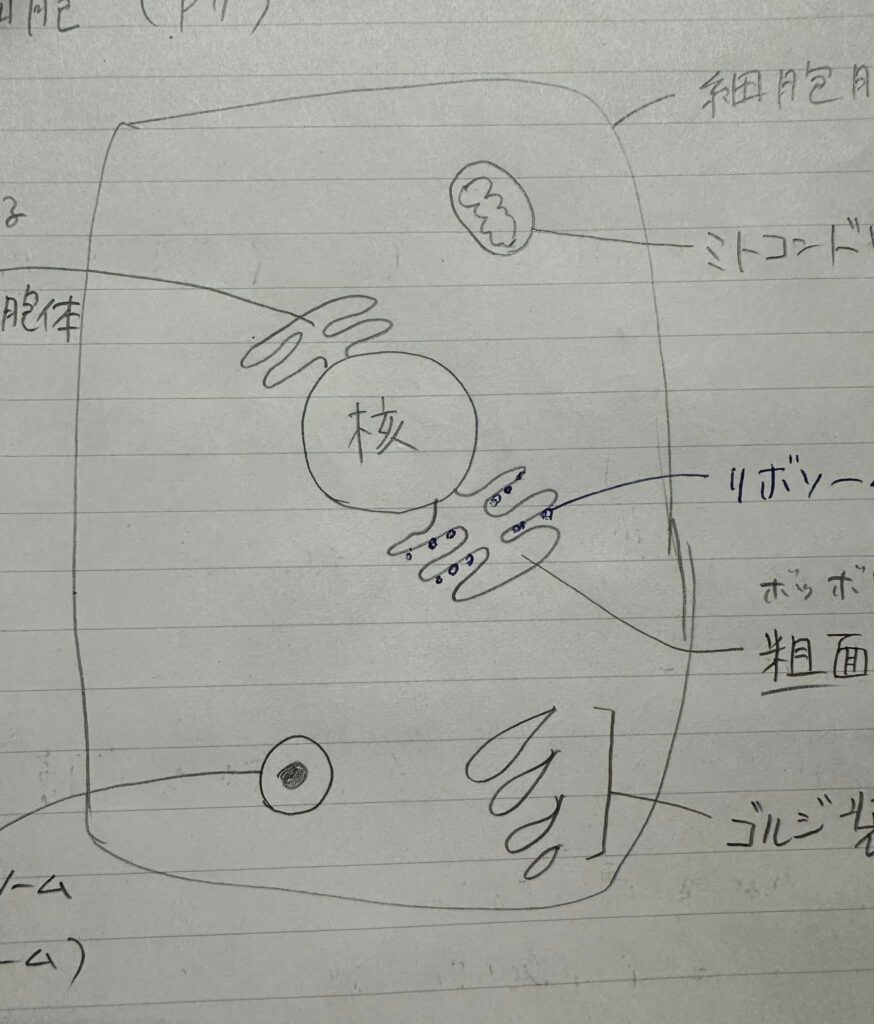 細胞
細胞膜
る
ミトコンドリ
胞体
核
リボソー
ボツボ
粗面
ゴルジ装
ソーム
ーム)